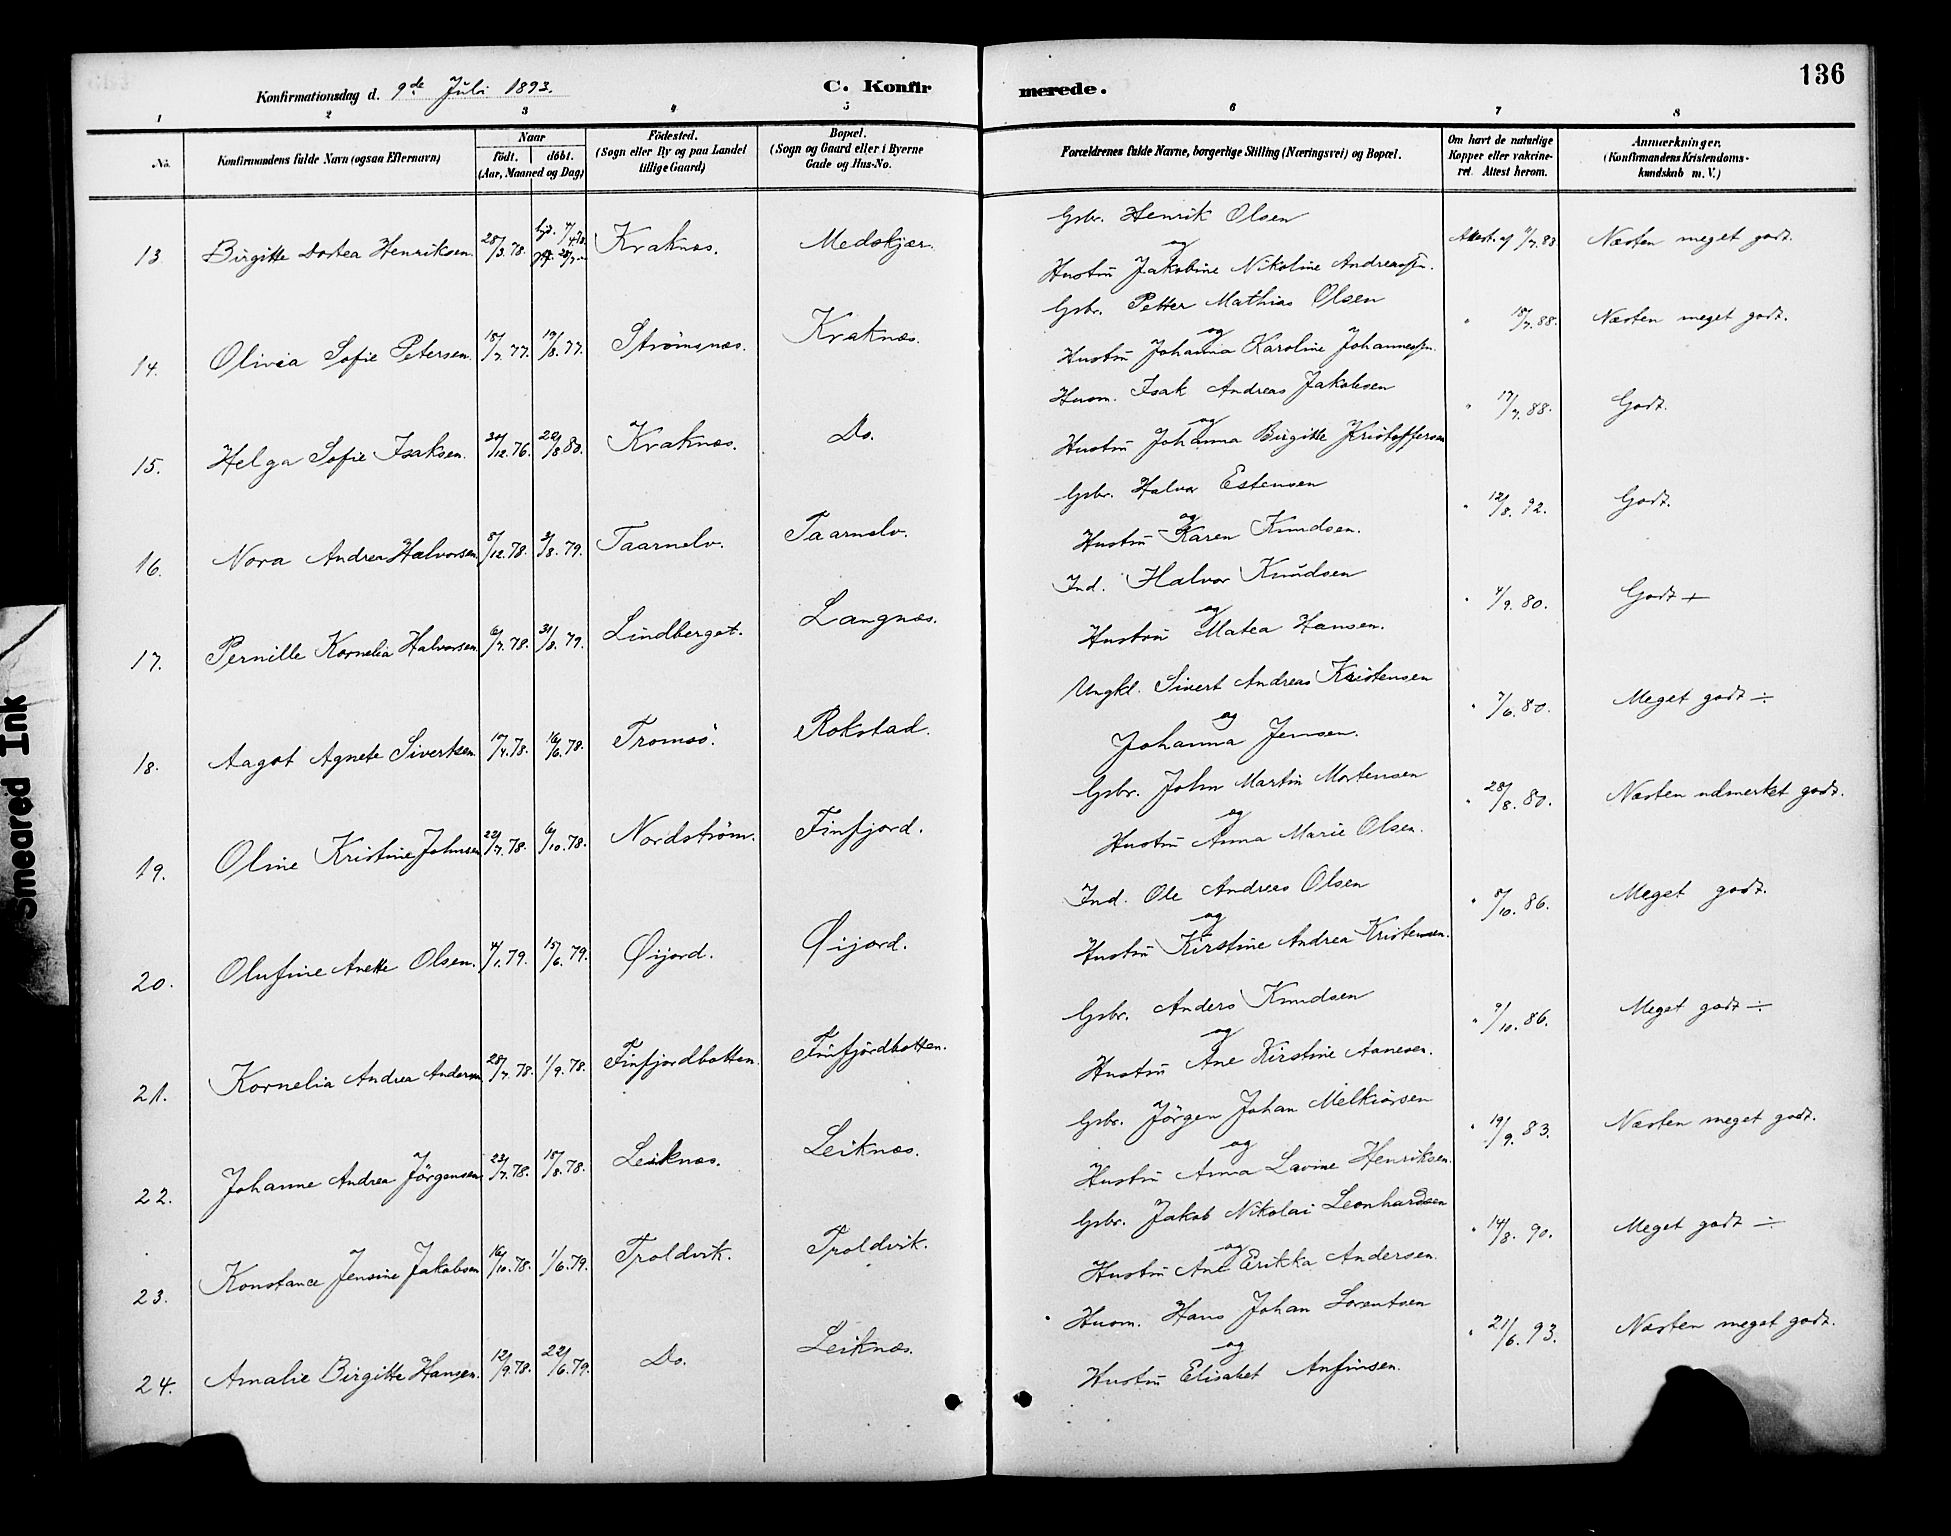 136
Konfirmationsdag d. 9de Juli 1893.
C. Konfirmerede.
1 2 3 4 5 6 7 8
No.
Konfirmandens fulde Navn (ogsaa Efternavn)
Naar
födt. döbt.
(Aar, Maaned og Dag)
Födested.
(Sogn eller By og paa Landet
tillige Gaard)
Bopæl.
(Sogn og Gaard eller i Byerne
Gade og Hus-No.
Forældrenes fulde Navne, borgerlige Stilling (Næringsvei) og Bopæl.
Om havt de naturlige
Kopper eller vakcine-
ret. Attest herom.
Anmærkninger.
(Konfirmandens Kristendoms-
kundskab m. V.)
13. Birgitte Dortea Henriksen. 28/3. 78. Kraknæs. Medskjær.
Gbr. Henrik Olsen
og
Hustru Jakobine Nikoline Andreassen.
Attest af 83 Næsten meget godt.
14. Olivia Sofie Petersen. 18/7. 77. 19/8. 77. Strømsnæs. Kraknæs.
Gbr. Petter Mathias Olsen
og
Hustru Johanna Karoline Johannessen.
" 18/7. 88. Næsten meget godt.
15. Helga Sofie Isaksen. 30/12. 76. 22/8 80. Kraknæs. Do.
Husm. Isak Andreas Jakobsen
og
Hustru Johanna Birgitte Kristoffersen
" 17/7. 88. Godt.
16. Nora Andrea Halvorsen 8/12. 78. 3/8. 79. Taarnelv. Taarnelv.
Gbr. Halvor Estensen
og
Hustru Karen Knudsen.
" 12/8. 92. Godt.
17. Pernille Kornelia Halvorsen 6/7. 78. 31/8. 79. Lindberget. Langnæs.
Ind. Halvor Knudsen
og
Hustru Matea Hansen.
" 4/9. 80. Godt +
18. Aagot Agnete Sivertsen. 10/4. 78. 16/6. 78. Tromsö. Rokstad.
Ungkl. Sivert Andreas Kristensen
og
Johanna Jensen.
" 7/6. 80. Meget godt ÷
19. Oline Kristine Johnsen 22/7. 78. 6/10. 78. Nordstrøm. Finfjord.
Gbr. John Martin Mortensen
og
Hustru Anna Marie Olsen.
" 28/8. 80. Næsten udmerket godt.
20. Olufine Anette Olsen. 4/1. 79. 15/6. 79. Øijord. Øijord.
Ind. Ole Andreas Olsen
og
Hustru Kirstine Andrea Kristensen.
" 8/10. 86. Meget godt.
21. Kornelia Andrea Andersen 28/7. 78. 1/9. 78. Finfjordbotten. Finfjordbotten.
Gbr. Anders Knudsen
og
Hustru Ane Kirstine Aanesen.
" 9/10. 86. Meget godt ÷
22. Johanne Andrea Jörgensen 23/7. 78. 18/8. 78. Leiknæs. Leiknæs.
Gbr. Jörgen Johan Melkiorsen
og
Hustru Anna Lavine Henriksen.
" 19/9. 83. Næsten meget godt.
23. Konstance Jensine Jakobsen 16/10. 78. 1/6. 79. Troldvik. Troldvik.
Gbr. Jakob Nikolai Leonhardsen
og
Hustru Ane Erikka Andersen.
" 14/8. 90. Meget godt ÷
24. Amalie Birgitte Hansen. 12/9. 78. 22/6. 79. Do. Leiknæs.
Husm. Hans Johan Lorentsen
og
Hustru Elisabet Anfinsen.
" 21/6. 93. Næsten meget godt.
Smeared Ink